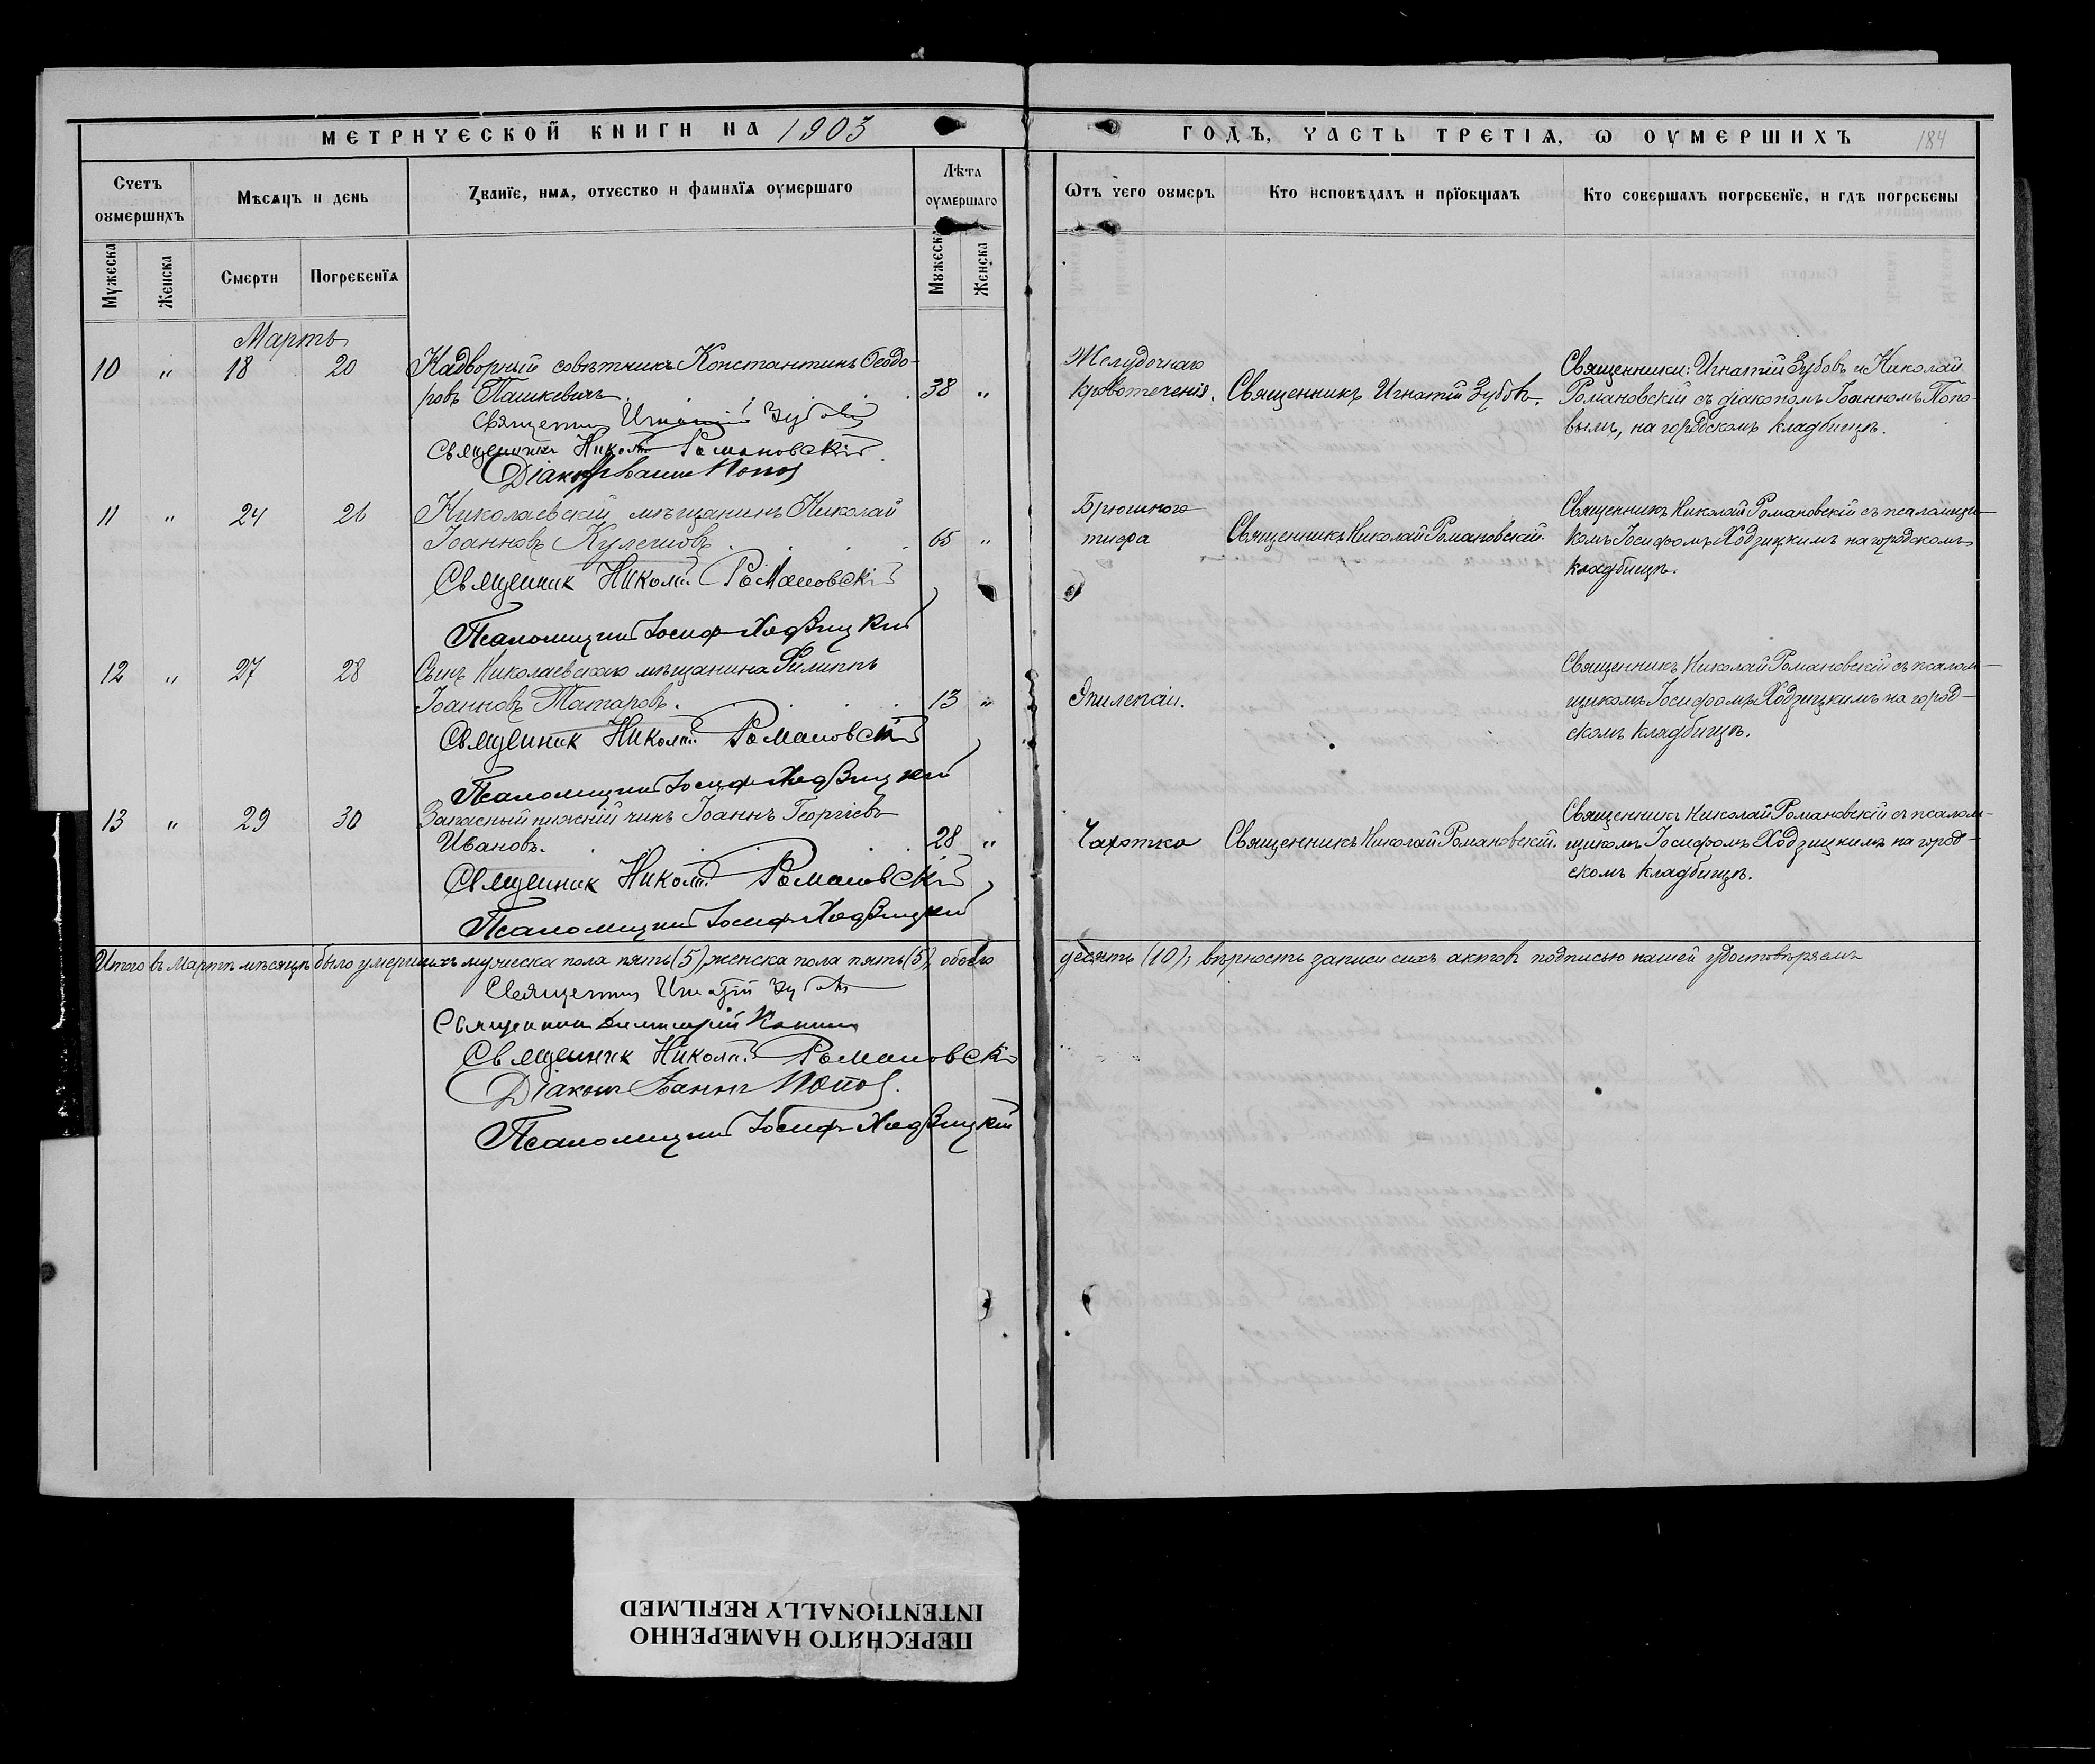 МЕТРИЧЕСКОЙ КНИГИ НА 1903
ГОДЪ, ЧАСТЬ ТРЕТІѦ, Ѡ ОУМЕРШИХЪ
184
Счетъ оумершихъ
Мѣсѧцъ и день
Званіе, имѧ, отчество и фамиліѧ оумершаго
Лѣта оумершаго
Ѿтъ чего оумеръ
Кто исповѣдалъ и пріобщалъ
Кто совершалъ погребеніе, и гдѣ погребены
Мужеска
Женска
Смерти
Погребеніѧ
Мужеска
Женска
Мартъ
10 " 18 20 Надворный совѣтникъ Константинъ Ѳеодо-
ровъ Пашкевичъ . . . 38 "
Священникъ Игнатій Зубовъ
Священникъ Николай Романовскій
Діаконъ Іоаннъ Попов
Желудочнаго
кровотеченія.
Священникъ Игнатій Зубовъ.
Священники: Игнатій Зубовъ и Николай
Романовскій съ діакономъ Іоанномъ Попо-
вымъ, на городскомъ кладбищѣ.
11 " 24 26 Николаевскій мѣщанинъ Николай
Іоанновъ Кулешовъ . . . 65 "
Священник Николай Романовскій
Псаломщикъ Іосиф Ходзицкій
Брюшного
тифа
Священникъ Николай Романовскій.
Священникъ Николай Романовскій съ псаломщи-
комъ Іосифомъ Ходзицкимъ на городскомъ
кладбищѣ.
12 " 27 28 Сынъ Николаевскаго мѣщанина Филиппъ
Іоанновъ Татаровъ. . . . 13 "
Священник Николай Романовскій
Псаломщикъ Іосиф Ходзицкій
Эпилепсіи.
Священникъ Николай Романовскій съ псалом-
щикомъ Іосифомъ Ходзицкимъ на город-
скомъ кладбищѣ.
13 " 29 30 Запасный нижній чинъ Іоаннъ Георгіевъ
Ивановъ. . . . 28 "
Священник Николай Романовскій
Псаломщикъ Іосиф Ходзицкій
Чахотка
Священникъ Николай Романовскій.
Священникъ Николай Романовскій съ псалом-
щикомъ Іосифомъ Ходзицкимъ на город-
скомъ кладбищѣ.
Итого въ Мартѣ мѣсяцѣ было умершихъ мужеска пола пять (5), женска пола пять (5), обоего
десять (10); вѣрность записи сихъ актовъ подписью нашей удостовѣряемъ
Священникъ Игнатій Зубовъ
Священникъ Димитрій
Священник Николай Романовскій
Діаконъ Іоаннъ Попов.
Псаломщикъ Іосиф Ходзицкій
ПЕРЕСНЯТО НАМЕРЕННО
INTENTIONALLY REFILMED